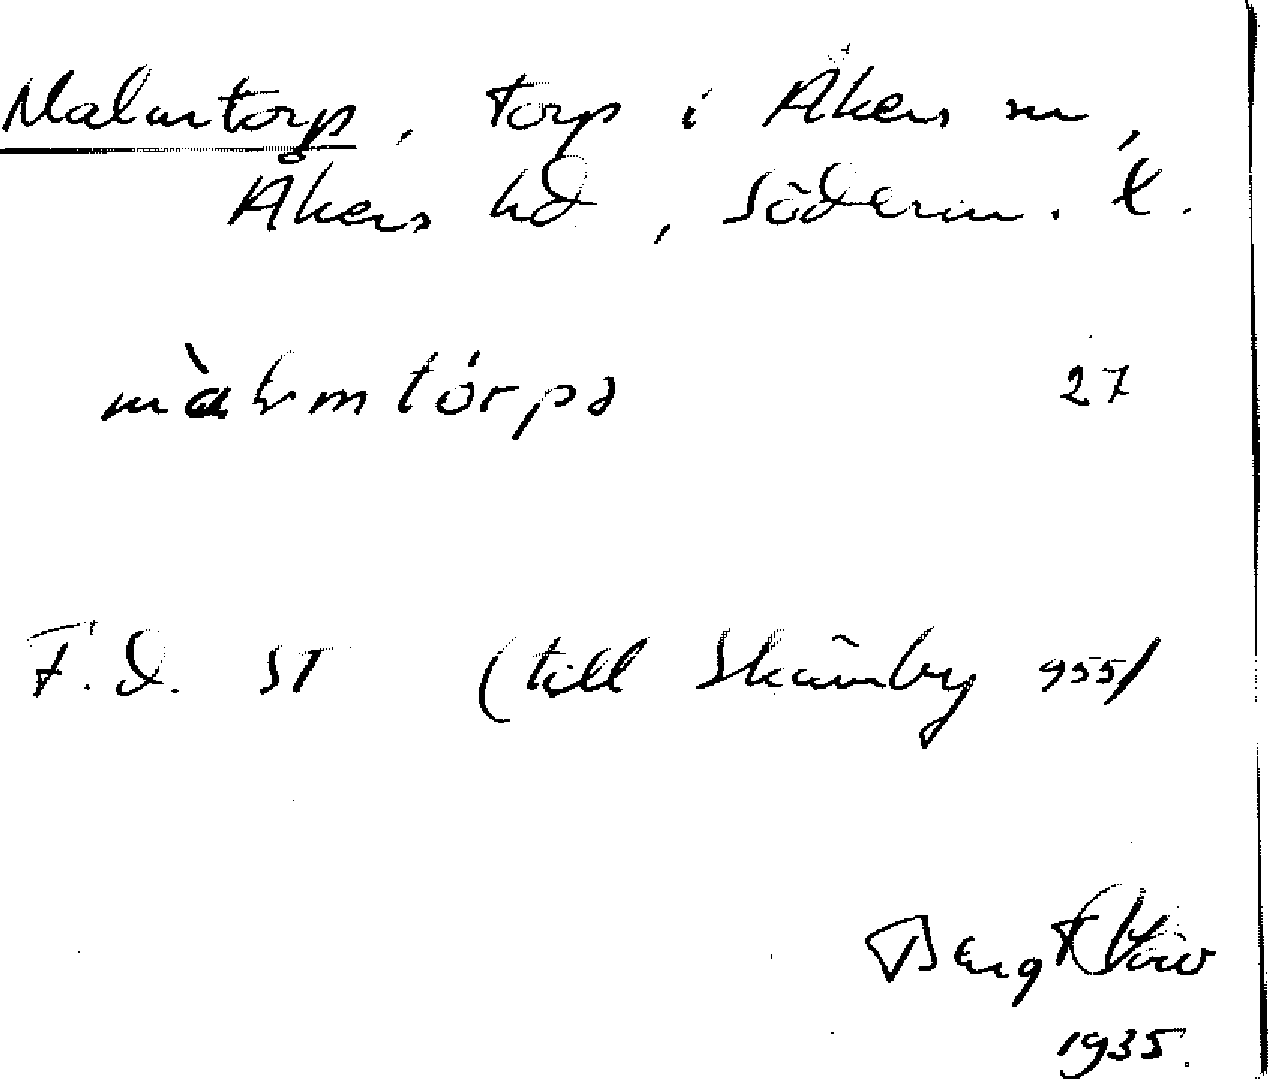 Malmtorp, torp i Åkers sn,
Åkers hd, Söderm. l.
màlmtórpə 27
F.d. ST (till Skämby 955/
Bengt
1935.